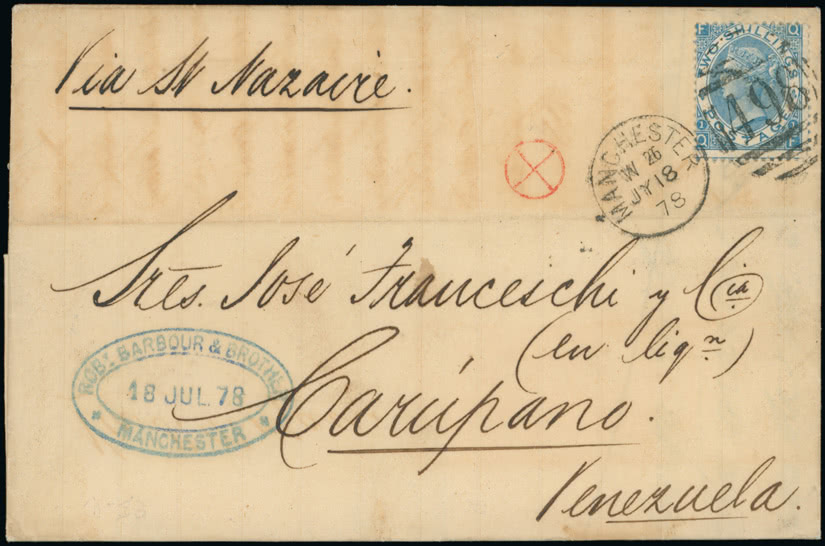 Via St Nazaire.
F Q
TWO SHILLINGS
POSTAGE
Q F
498
MANCHESTER
W 26
JY 18
78
Sres. José Franceschi y Cia
(en liqn)
Carúpano.
Venezuela.
ROBT. BARBOUR & BROTHR.
18 JUL. 78
MANCHESTER